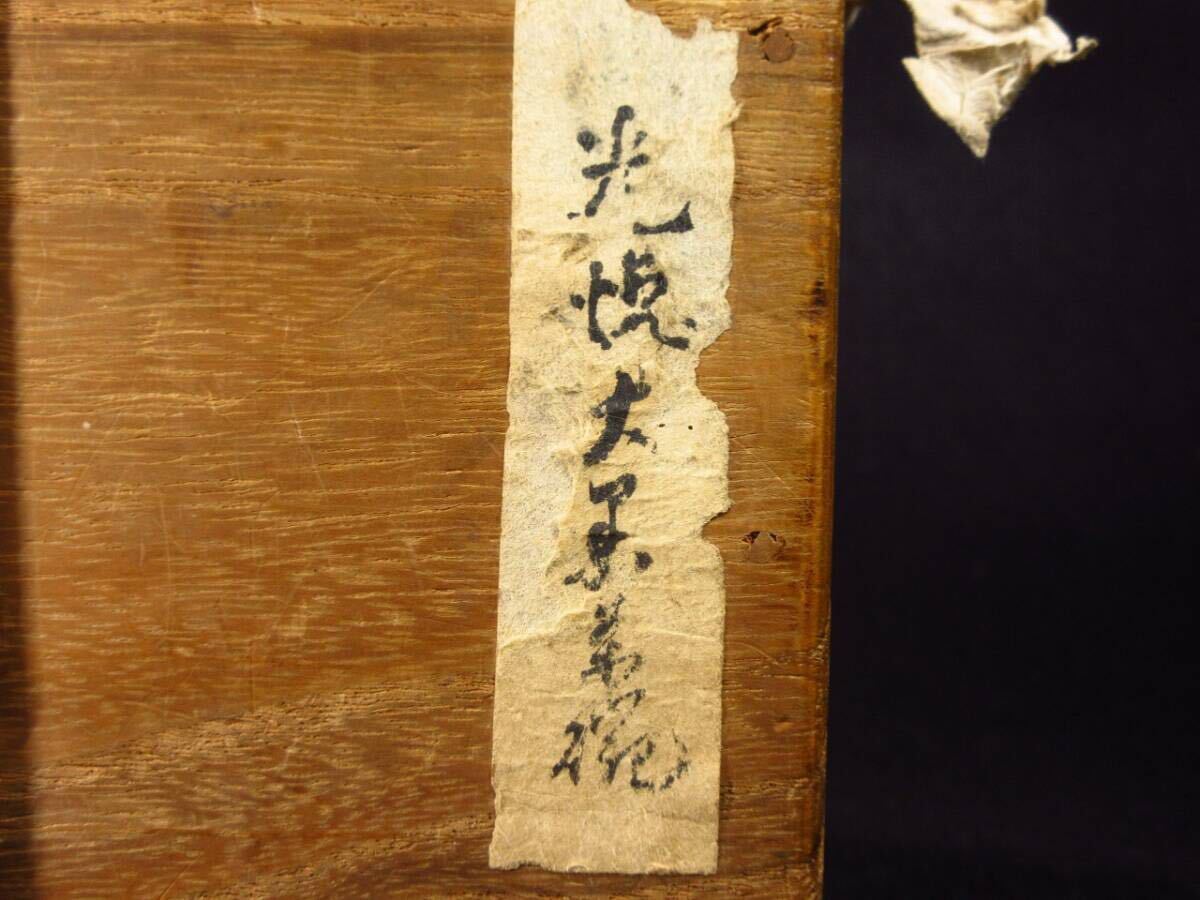 光悦大黒茶碗